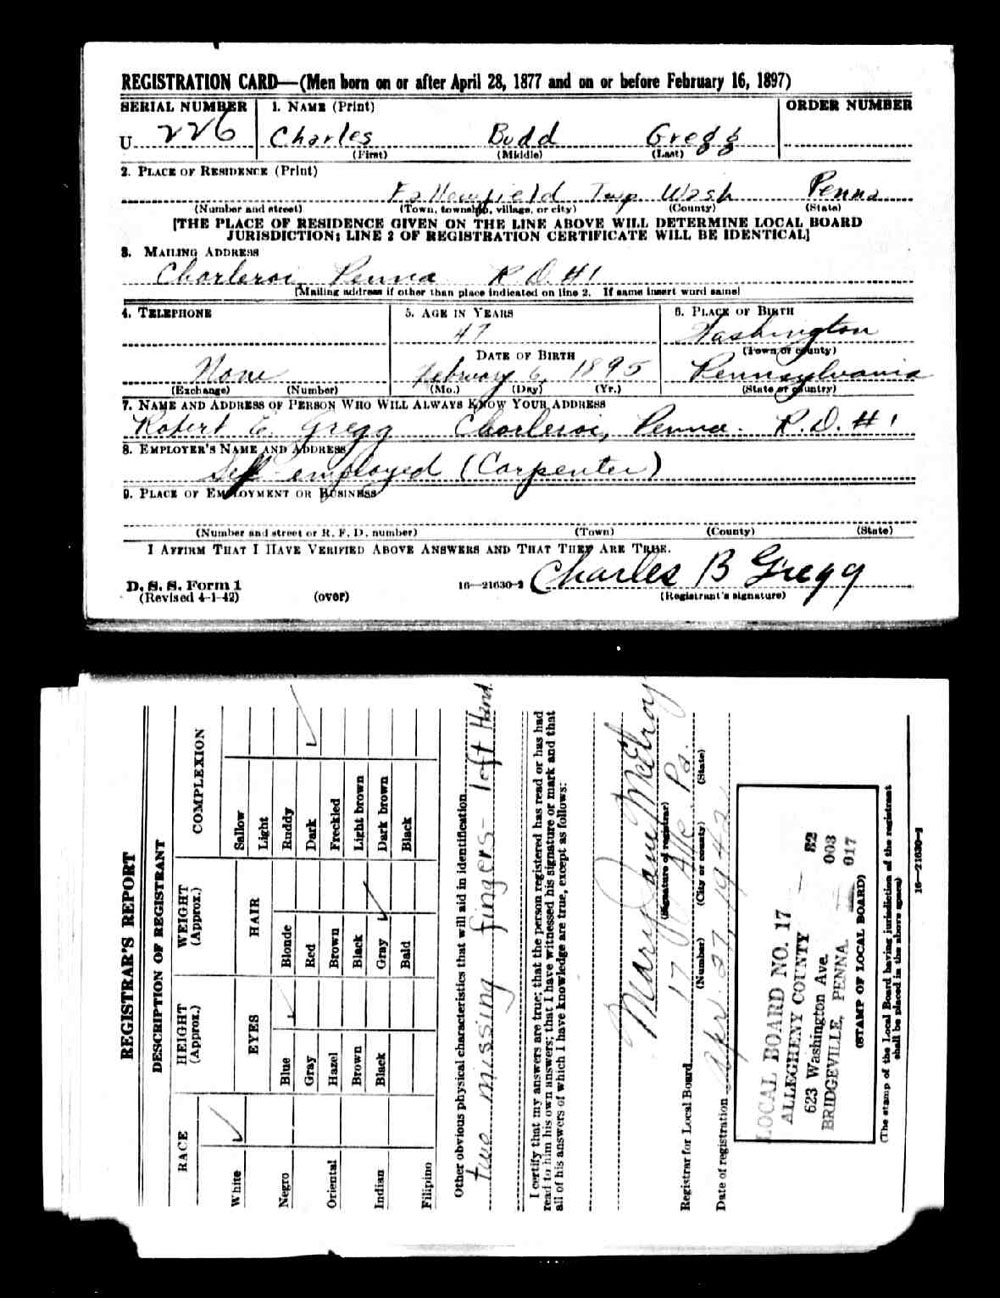 REGISTRATION CARD—(Men born on or after April 28, 1877 and on or before February 16, 1897)
SERIAL NUMBER 1. NAME (Print) ORDER NUMBER
U 226 Charles Budd Gregg
(First) (Middle) (Last)
2. PLACE OF RESIDENCE (Print)
Fallowfield Twp Wash Penna
(Number and street) (Town, township, village, or city) (County) (State)
[THE PLACE OF RESIDENCE GIVEN ON THE LINE ABOVE WILL DETERMINE LOCAL BOARD
JURISDICTION; LINE 2 OF REGISTRATION CERTIFICATE WILL BE IDENTICAL]
3. MAILING ADDRESS
Charleroi, Penna R.D. #1
[Mailing address if other than place indicated on line 2. If same insert word same]
4. TELEPHONE 5. AGE IN YEARS 6. PLACE OF BIRTH
47 Washington
DATE OF BIRTH (Town or county)
None February 6, 1895 Pennsylvania
(Exchange) (Number) (Mo.) (Day) (Yr.) (State or country)
7. NAME AND ADDRESS OF PERSON WHO WILL ALWAYS KNOW YOUR ADDRESS
Robert E. Gregg Charleroi, Penna. R.D. #1
8. EMPLOYER'S NAME AND ADDRESS
Self employed (Carpenter)
9. PLACE OF EMPLOYMENT OR BUSINESS
(Number and street or R. F. D. number) (Town) (County) (State)
I AFFIRM THAT I HAVE VERIFIED ABOVE ANSWERS AND THAT THEY ARE TRUE.
D. S. S. Form 1
(Revised 4-1-42) (over) 16—21630-2 Charles B Gregg
(Registrant's signature)
REGISTRAR'S REPORT
DESCRIPTION OF REGISTRANT
RACE HEIGHT (Approx.) WEIGHT (Approx.) COMPLEXION
EYES HAIR
White Sallow
Light
Negro Blue Blonde Ruddy
Gray Red Dark
Oriental Hazel Brown Freckled
Brown Black Light brown
Indian Black Gray Dark brown
Filipino Bald Black
Other obvious physical characteristics that will aid in identification
two missing fingers - left Hand
I certify that my answers are true; that the person registered has read or has had
read to him his own answers; that I have witnessed his signature or mark and that
all of his answers of which I have knowledge are true, except as follows:
Mary Jane McElroy
(Signature of registrar)
Registrar for Local Board 17 Alle. Pa.
(Number) (City or county) (State)
Date of registration Apr. 27, 1942
LOCAL BOARD NO. 17 52
ALLEGHENY COUNTY 003
623 Washington Ave. 017
BRIDGEVILLE, PENNA.
(STAMP OF LOCAL BOARD)
(The stamp of the Local Board having jurisdiction of the registrant
shall be placed in the above space)
16—21630-2